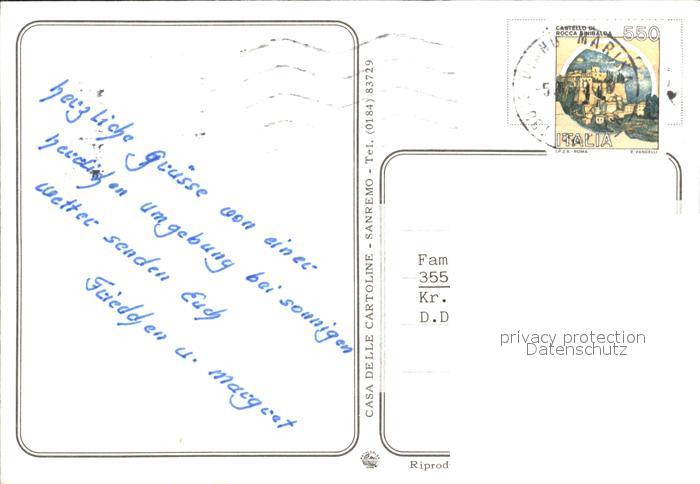 herzliche Grüsse von einer
herrlichen umgebung bei sonnigen
wetter senden Euch
Friedchen u. margret
CASA DELLE CARTOLINE - SANREMO - Tel. (0184) 83729
CASTELLO DI
ROCCA SINIBALDA
550
ITALIA
I.P.Z.S. - ROMA E. VANGELLI
DIANO MARI
Fam
355
Kr.
D.D
privacy protection
Datenschutz
Riprod